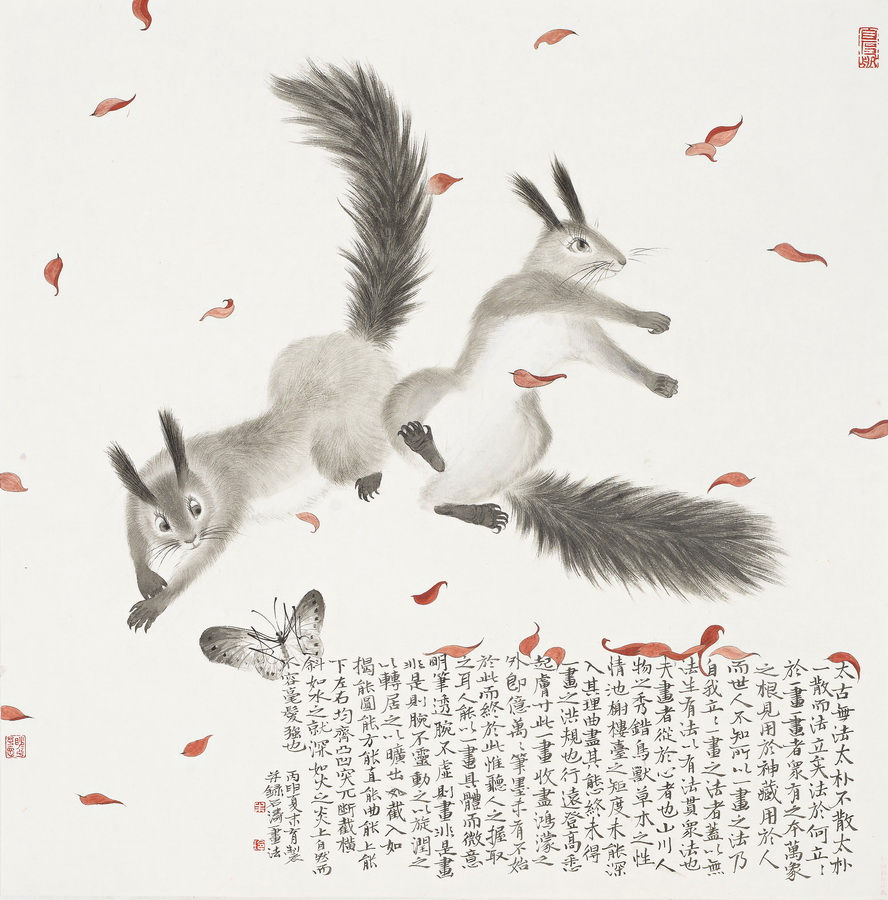 太古無法太朴不散太朴
一散而法立矣法於何立〻
於一畫畫者衆有之本萬象
之根見用於神藏用於人
而世人不知所以一畫之法乃
自我立〻一畫之法者蓋以無
法生有法以有法貫衆法也
夫畫者從於心者也山川人
物之秀錯鳥獸草木之性
情池榭樓臺之矩度未能深
入其理曲盡其態終未得
一畫之洪規也行遠登高悉
起膚寸此一畫收盡鴻蒙之
外即億萬〻筆墨未有不始
於此而終於此惟聽人之握取
之耳人能以一畫具體而微意
明筆透腕不虛則畫非是畫
非是則腕不靈動之以旋潤之
以轉居之以曠出如截入如
揭能圓能方能直能曲能上能
下左右均齊凸凹突兀斷截橫
斜如水之就深如火之炎上自然而
不容毫髮強也
丙申夏末育製
并錄石濤畫法